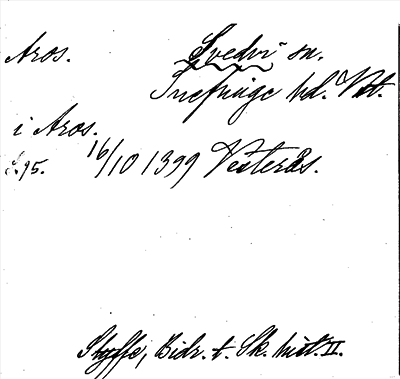 Aros. Svedvi sn.
Snefringe hd. Vstl.
i Aros.
s. 95. 16/10 1399 Vesterås.
Styffe, Bidr. t. Sk. hist. II.